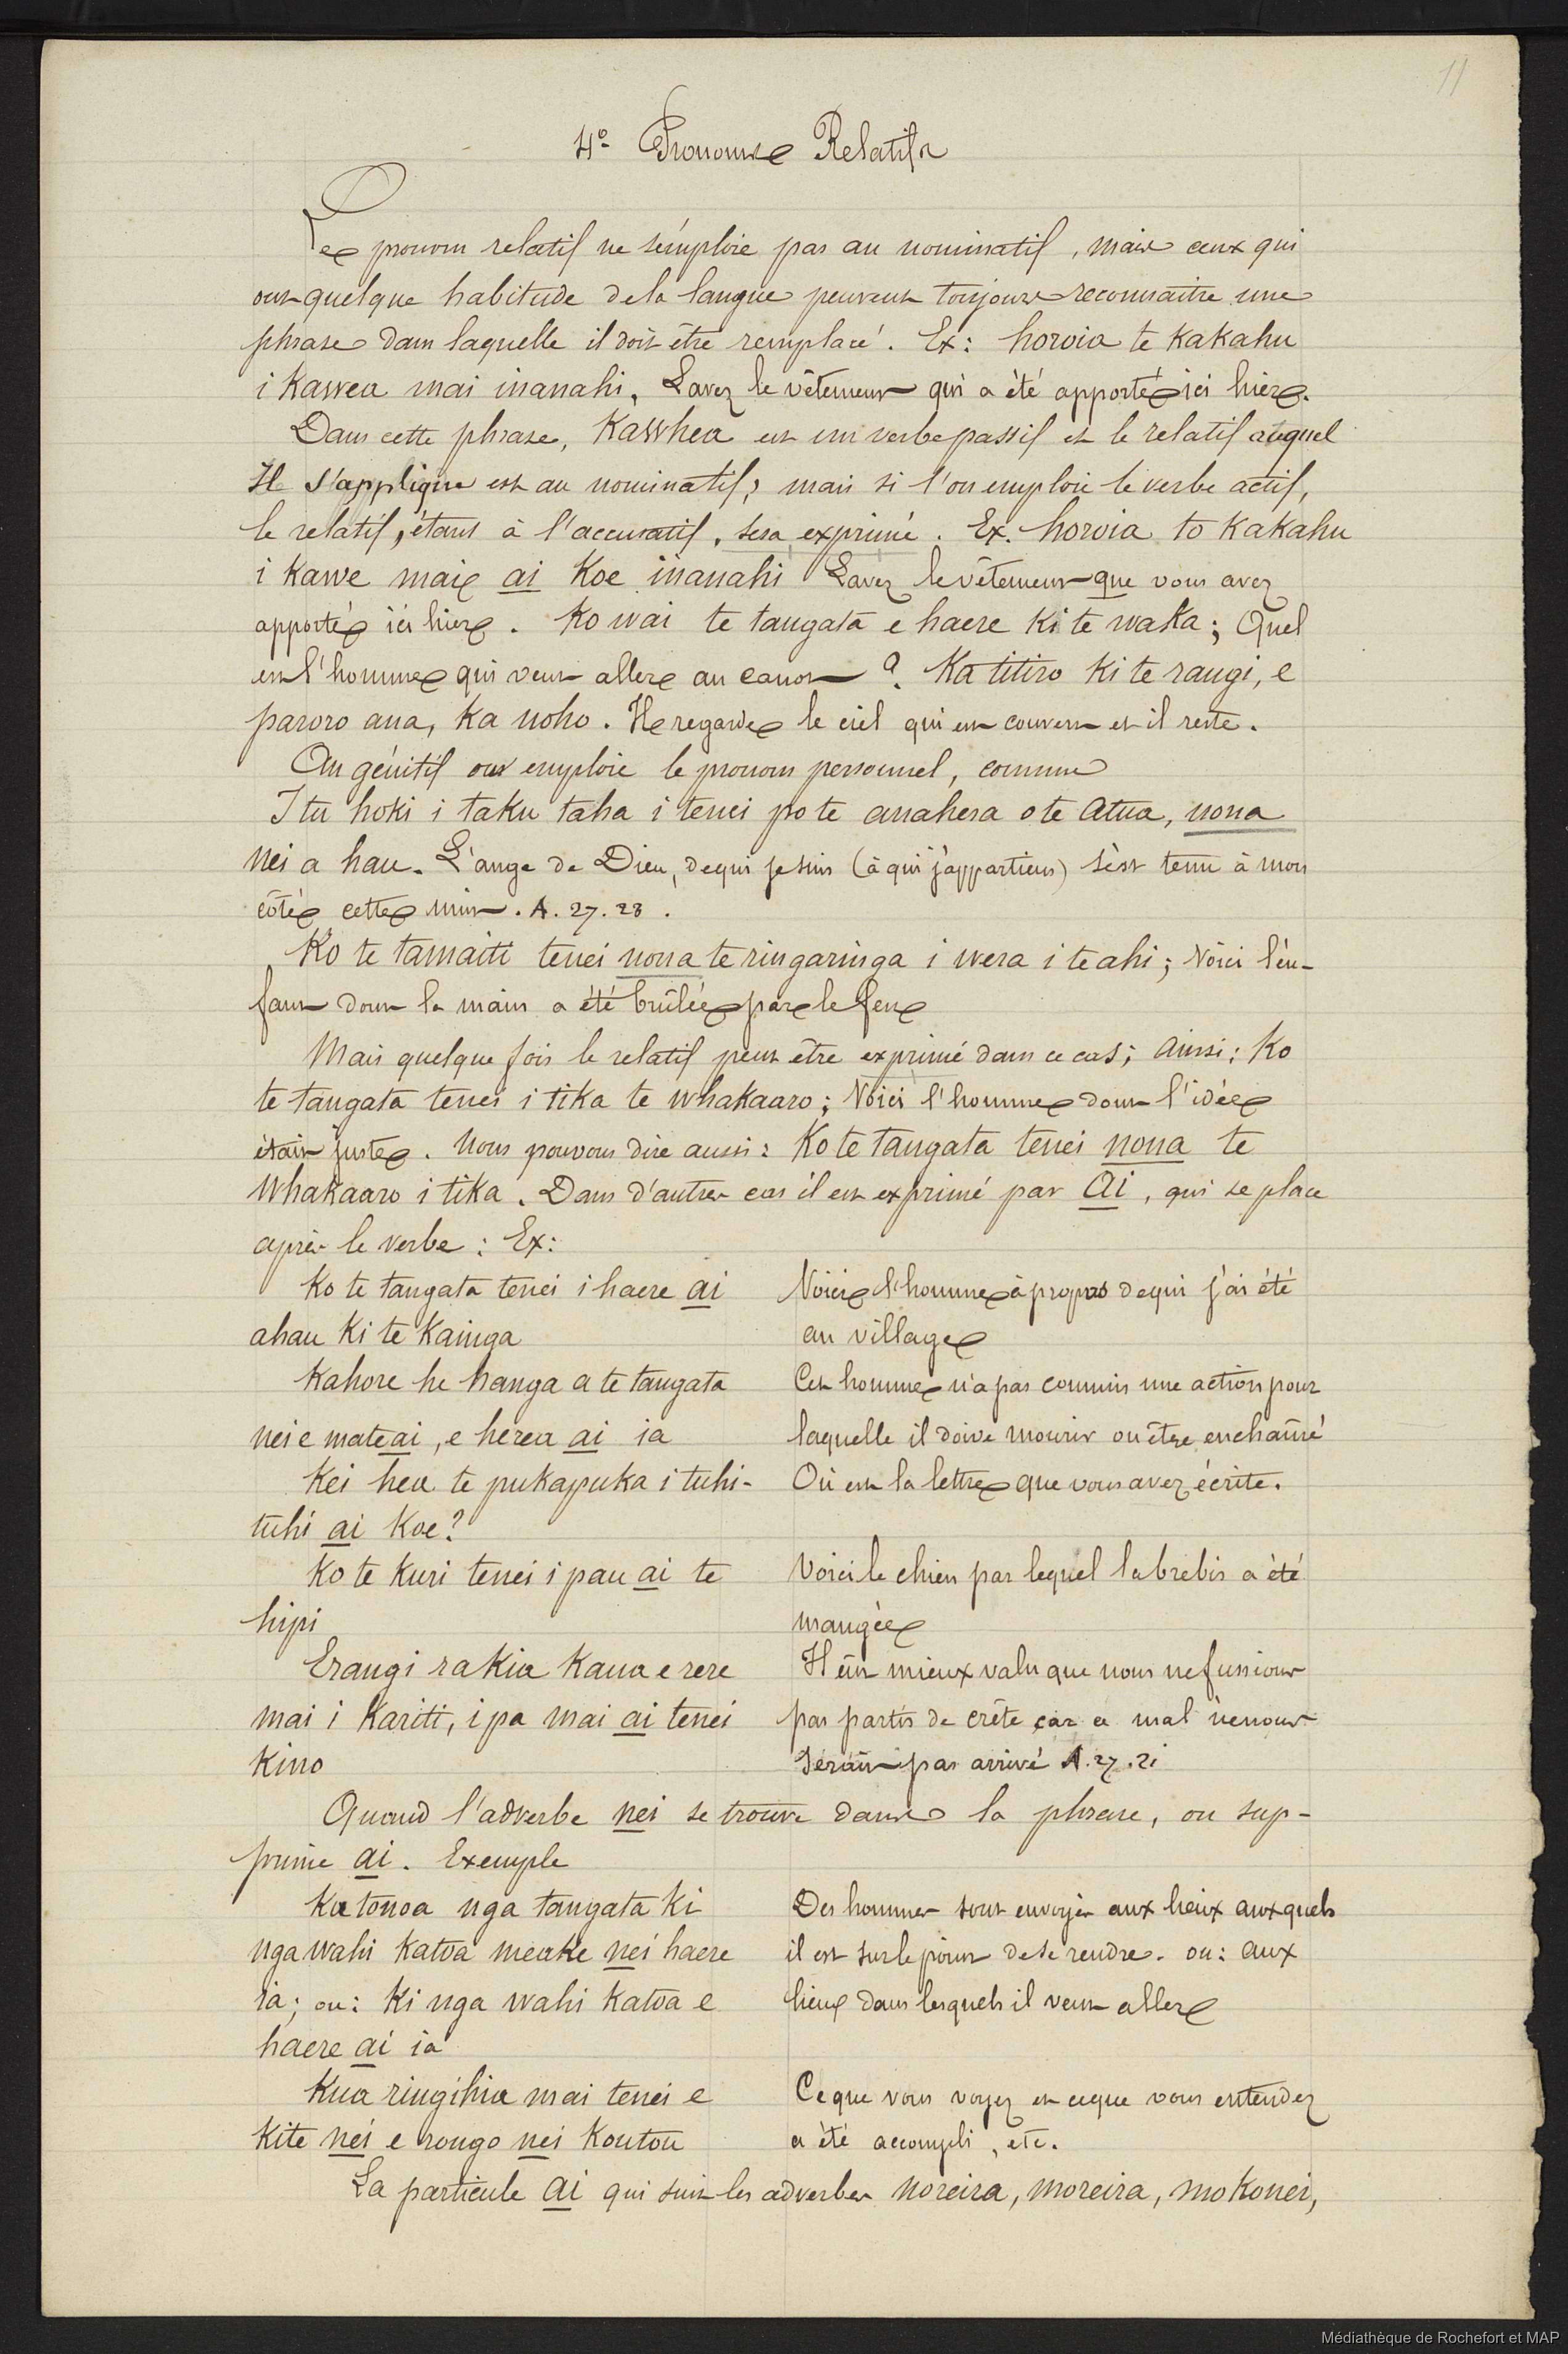 11
4º Pronoms Relatifs
Le pronom relatif ne s'emploie pas au nominatif, mais ceux qui
ont quelque habitude de la langue peuvent toujours reconnaitre une
phrase dans laquelle il doit être remplacé. Ex: horoia te Kakahu
i Kawea mai inanahi, Lavez le vêtement qui a été apporté ici hier.
Dans cette phrase, Kawhea est un verbe passif et le relatif auquel
Il s'applique est au nominatif, mais si l'on emploie le verbe actif,
le relatif, étant à l'accusatif, sera exprimé. Ex. horoia to Kakahu
i Kawe mai ai Koe inanahi Lavez le vêtement que vous avez
apporté ici hier. Ko wai te tangata e haere Ki te waka; Quel
est l'homme qui veut aller au canot? Ka titiro Ki te rangi, e
paroro ana, Ka noho. Il regarde le ciel qui est couvert et il reste.
Au génitif on emploie le pronom personnel, comme
I tu hoki i taku taha i tenei po te anahera o te Atua, nona
nei a hau. L'ange de Dieu, de qui je suis (à qui j'appartiens) s'est tenu à mon
côté cette nuit. A. 27. 23.
Ko te tamaiti tenei nona te ringaringa i wera i te ahi; Voici l'en-
fant dont la main a été brûlée par le feu
Mais quelque fois le relatif peut être exprimé dans ce cas; Ainsi: Ko
te tangata tenei i tika te whakaaro; Voici l'homme dont l'idée
était juste. Nous pouvons dire aussi: Ko te tangata tenei nona te
Whakaaro i tika. Dans d'autres cas il est exprimé par Ai, qui se place
après le verbe: Ex:
Ko te tangata tenei i haere ai Voici l'homme à propos de qui j'ai été
ahau Ki te Kainga au village
Kahore he hanga a te tangata Cet homme n'a pas commis une action pour
nei e mate ai, e herea ai ia laquelle il doive mourir ou être enchaîné
Kei hea te pukapuka i tuhi- Où est la lettre que vous avez écrite.
tuhi ai Koe?
Ko te Kuri tenei i pau ai te Voici le chien par lequel la brebis a été
hipi mangée
Erangi ra Kia Kaua e rere Il eût mieux valu que nous ne fussions
mai i Kariti, i pa mai ai tenei pas partis de crête car ce mal ne nous
Kino serait pas arrivé A. 27. 21
Quand l'adverbe nei se trouve dans la phrase, on sup-
prime ai. Exemple
Ka tonoa nga tangata Ki Des hommes sont envoyés aux lieux auxquels
nga wahi Katoa meake nei haere il est sur le point de se rendre. ou: aux
ia; ou: Ki nga wahi Katoa e lieux dans lesquels il veut aller
haere ai ia
Kua ringihia mai tenei e Ce que vous voyez et ce que vous entendez
Kite nei e rongo nei Koutou a été accompli, etc.
La particule Ai qui suit les adverbes noreira, moreira, mo Konei,
Médiathèque de Rochefort et MAP